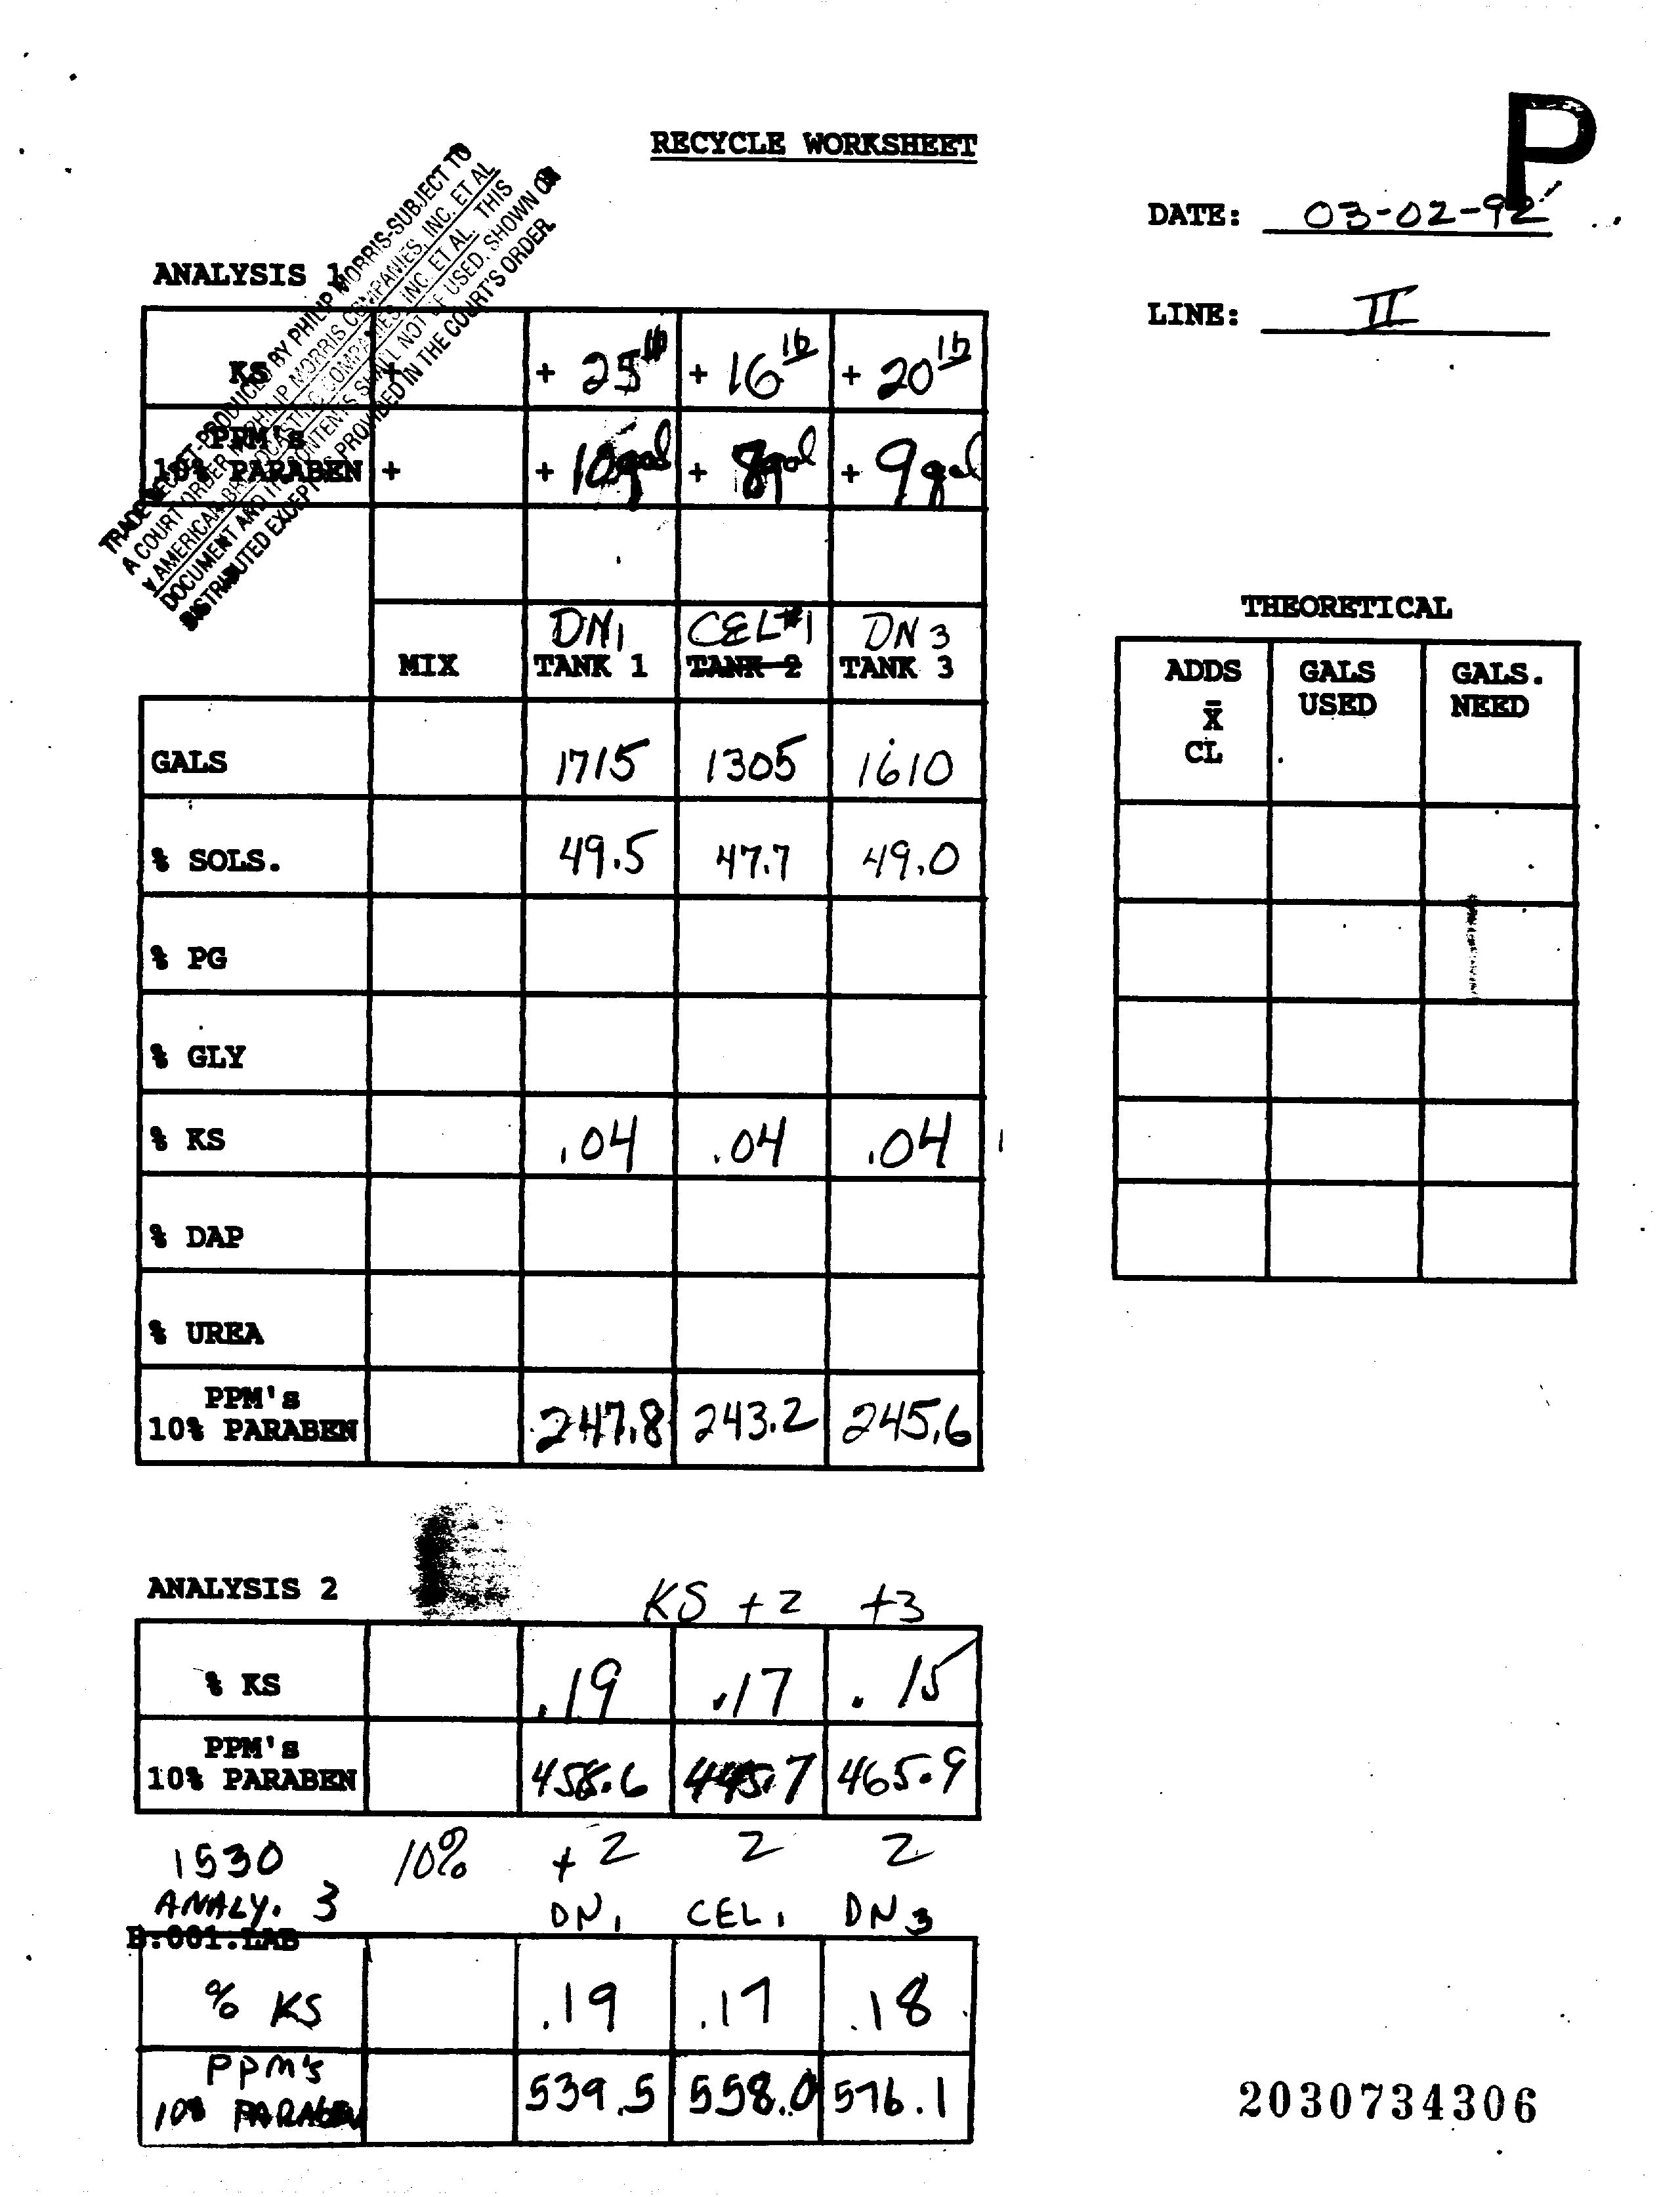 P
RECYCLE WORKSHEET
DATE: 03-02-92
LINE: II
TRADE SECRET-PRODUCED BY PHILIP MORRIS-SUBJECT TO
A COURT ORDER IN PHILIP MORRIS COMPANIES, INC. ET AL
v AMERICAN BROADCASTING COMPANIES, INC. ET AL. THIS
DOCUMENT AND ITS CONTENTS SHALL NOT BE USED, SHOWN OR
DISTRIBUTED EXCEPT AS PROVIDED IN THE COURT'S ORDER.
ANALYSIS 1
KS + + 25 lb + 16 lb + 20 lb
PPM's
10% PARABEN + + 10 gal + 8 gal + 9 gal
DN1 CEL#1 DN 3
MIX TANK 1 TANK 2 TANK 3
GALS 1715 1305 1610
% SOLS. 49.5 47.7 49.0
% PG
% GLY
% KS .04 .04 .04
% DAP
% UREA
PPM's
10% PARABEN 247.8 243.2 245.6
THEORETICAL
ADDS GALS GALS.
X̄ USED NEED
CL
ANALYSIS 2 KS +2 +3
% KS .19 .17 .15
PPM's
10% PARABEN 458.6 445.7 465.9
1530 10% +2 2 2
ANALY. 3 DN1 CEL1 DN3
B:001.LAB
% KS .19 .17 .18
PPM's
10% PARABEN 539.5 558.0 576.1
2030734306